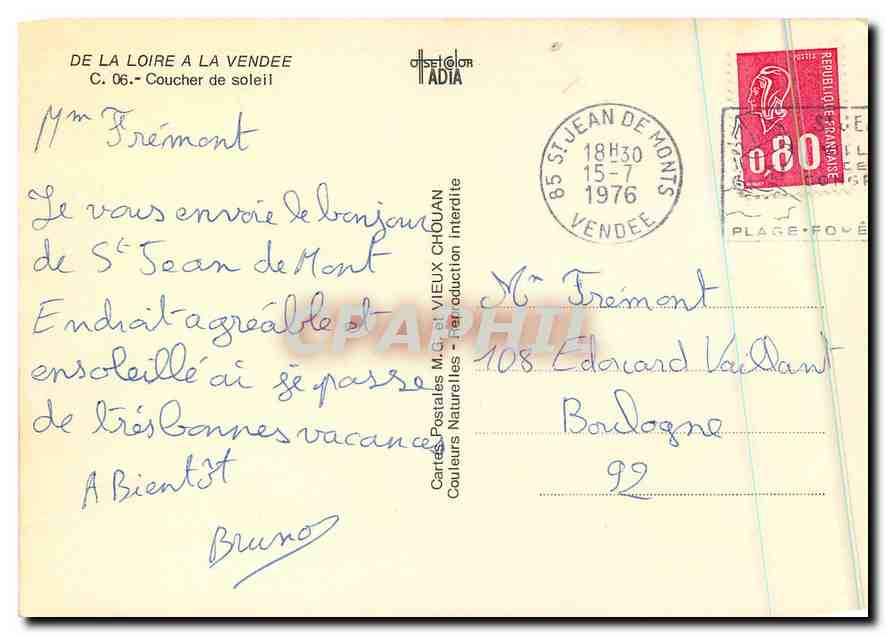 DE LA LOIRE A LA VENDEE
C. 06.- Coucher de soleil
OffsetColor
ADIA
Mm Frémont
Je vous envoie le bonjour
de St Jean de Mont
Endroit agréable et
ensoleillé ai je passe
de très bonnes vacances
A Bientôt
Bruno
Cartes Postales M.G. et VIEUX CHOUAN
Couleurs Naturelles - Reproduction interdite
85 ST JEAN DE MONTS
18H30
15-7
1976
VENDEE
POSTES
REPUBLIQUE FRANÇAISE
0,80
PLAGE-FO
Mm Frémont
108 Edouard Vaillant
Boulogne
92
CPAPHIL